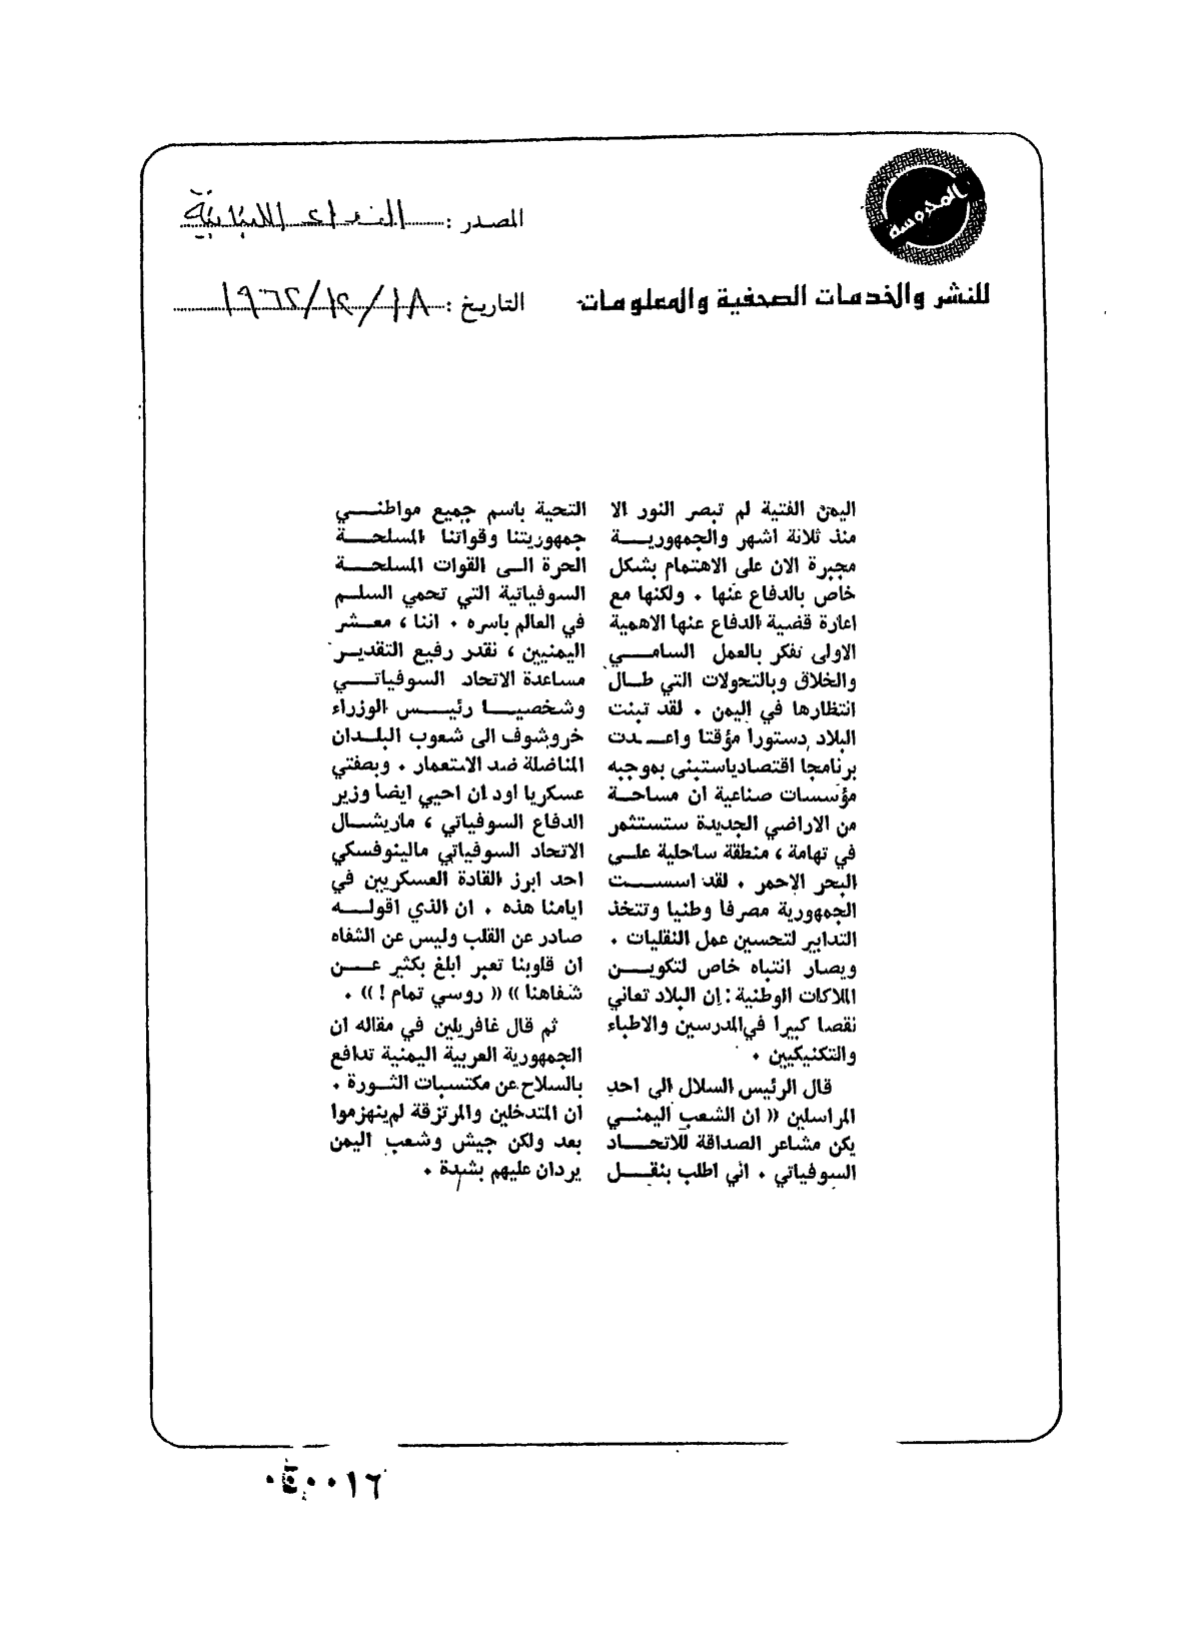 المحروسة
للنشر والخدمات الصحفية والمعلومات
المصدر : النداء اللبنانية
التاريخ : ١٩٦٢/١٢/١٨
اليمن الفتية لم تبصر النور الا
منذ ثلاثة اشهر والجمهوريـــة
مجبرة الان على الاهتمام بشكل
خاص بالدفاع عنها . ولكنها مع
اعارة قضية الدفاع عنها الاهمية
الاولى تفكر بالعمل السامـــي
والخلاق وبالتحولات التي طــال
انتظارها في اليمن . لقد تبنت
البلاد دستورا مؤقتا واعــدت
برنامجا اقتصادياستبنى بموجبه
مؤسسات صناعية ان مساحــة
من الاراضي الجديدة ستستثمر
في تهامة ، منطقة ساحلية علــى
البحر الاحمر . لقد اسســـت
الجمهورية مصرفا وطنيا وتتخذ
التدابير لتحسين عمل النقليات .
ويصار انتباه خاص لتكويـــن
الملاكات الوطنية : إن البلاد تعاني
نقصا كبيرا في المدرسين والاطباء
والتكنيكيين .
قال الرئيس السلال الى احد
المراسلين (( ان الشعب اليمنـــي
يكن مشاعر الصداقة للاتحـــاد
السوفياتي . اني اطلب بنقـــل
التحية باسم جميع مواطنـــي
جمهوريتنا وقواتنا المسلحـــة
الحرة الــى القوات المسلحـــة
السوفياتية التي تحمي السلــم
في العالم باسره . اننا ، معــشر
اليمنيين ، نقدر رفيع التقديــر
مساعدة الاتحاد السوفياتـــي
وشخصيـــا رئيـــس الوزراء
خروشوف الى شعوب البلــدان
المناضلة ضد الاستعمار . وبصفتي
عسكريا اود ان احيي ايضا وزير
الدفاع السوفياتي ، ماريشــال
الاتحاد السوفياتي مالينوفسكي
احد ابرز القادة العسكريين في
ايامنا هذه . ان الذي اقولــه
صادر عن القلب وليس عن الشفاه
ان قلوبنا تعبر ابلغ بكثير عـــن
شفاهنا )) (( روسي تمام ! )) .
ثم قال غافريلين في مقاله ان
الجمهورية العربية اليمنية تدافع
بالسلاح عن مكتسبات الثــورة .
ان المتدخلين والمرتزقة لم ينهزموا
بعد ولكن جيش وشعب اليمن
يردان عليهم بشدة .